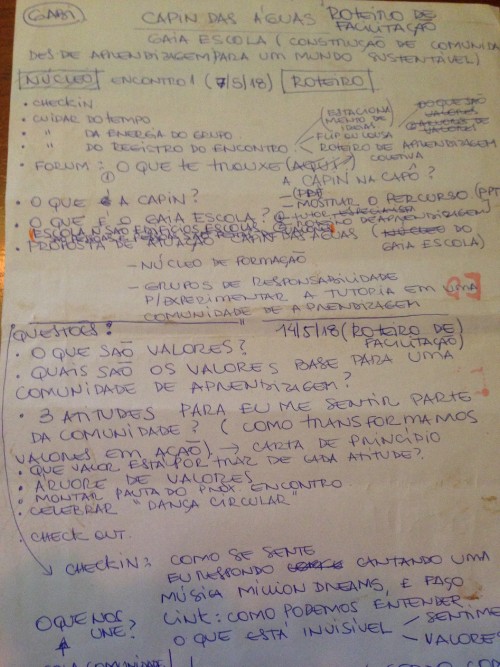 GABI
CAPIN DAS ÁGUAS ROTEIRO DE FACILITAÇÃO
GAIA ESCOLA (CONSTRUÇÃO DE COMUNIDA
DES DE APRENDIZAGEM PARA UM MUNDO SUSTENTÁVEL)
NÚCLEO ENCONTRO 1 (7/5/18) ROTEIRO
• CHECKIN
• CUIDAR DO TEMPO
• " DA ENERGIA DO GRUPO
• " DO REGISTRO DO ENCONTRO
ESTACIONA
MENTO DE
IDEIAS
FLIP OU LOUSA
ROTEIRO DE APRENDIZAGEM
COLETIVA
O QUE SÃO
VALORES
• FORUM: O QUE TE TROUXE (AQUI)
A CAPIN NA CAPÔ?
• O QUE É A CAPIN? — (PPP)
— MOSTRAR O PERCURSO (PPT
• O QUE É O GAIA ESCOLA? DE APRENDIZAGEM)
ESCOLA NÃO SÃO EDIFÍCIOS ESCOLAS
• PROPOSTA DE ATUAÇÃO CAPIN DAS ÁGUAS (NÚCLEO DO
GAIA ESCOLA)
— NÚCLEO DE FORMAÇÃO
— GRUPOS DE RESPONSABILIDADE
P/ EXPERIMENTAR A TUTORIA EM UMA
COMUNIDADE DE APRENDIZAGEM
QUESTÕES: 14/5/18 (ROTEIRO DE
FACILITAÇÃO)
• O QUE SÃO VALORES?
• QUAIS SÃO OS VALORES BASE PARA UMA
COMUNIDADE DE APRENDIZAGEM?
• 3 ATITUDES PARA EU ME SENTIR PARTE
DA COMUNIDADE? (COMO TRANSFORMAMOS
VALORES EM AÇÃO) → CARTA DE PRINCÍPIO
• QUE VALOR ESTÁ POR TRAZ DE CADA ATITUDE?
• ÁRVORE DE VALORES
• MONTAR PAUTA DO PROX ENCONTRO
• CELEBRAR "DANÇA CIRCULAR"
• CHECK OUT.
CHECKIN: COMO SE SENTE
EU RESPONDO CANTANDO UMA
MÚSICA MILLION DREAMS, E FAÇO
O QUE NOS UNE? LINK: COMO PODEMOS ENTENDER
O QUE ESTÁ INVISÍVEL
SENTIME
VALORES
COMUNIDADE